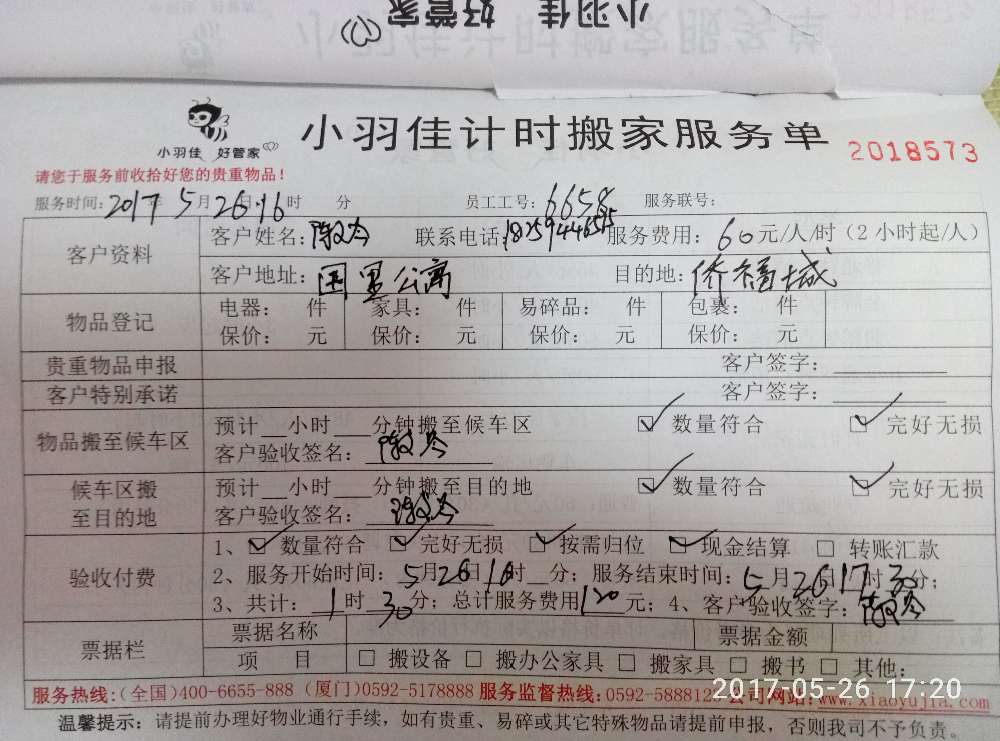 小羽佳 好管家
小羽佳 好管家
小羽佳计时搬家服务单
2018573
请您于服务前收拾好您的贵重物品！
服务时间：2017年5月26日16时 分 员工工号：6658 服务联号：
客户资料
客户姓名： 联系电话： 服务费用：60元/人/时（2小时起/人）
客户地址：国墅公寓 目的地：侨福城
物品登记
电器： 件 家具： 件 易碎品： 件 包裹： 件
保价： 元 保价： 元 保价： 元 保价： 元
贵重物品申报 客户签字：
客户特别承诺 客户签字：
物品搬至候车区
预计__小时___分钟搬至候车区 ☑ 数量符合 ☑ 完好无损
客户验收签名：
候车区搬至目的地
预计__小时___分钟搬至目的地 ☑ 数量符合 ☑ 完好无损
客户验收签名：
验收付费
1、☑ 数量符合 ☑ 完好无损 ☑ 按需归位 ☑ 现金结算 □ 转账汇款
2、服务开始时间：5月26日16时__分；服务结束时间：5月26日17时30分；
3、共计：1时30分；总计服务费用120元；4、客户验收签字：
票据栏
票据名称 票据金额
项 目 □ 搬设备 □ 搬办公家具 □ 搬家具 □ 搬书 □ 其他：
服务热线：（全国）400-6655-888（厦门）0592-5178888 服务监督热线：0592-5888123 公司网站：www.xiaoyujia.com
2017-05-26 17:20
温馨提示：请提前办理好物业通行手续，如有贵重、易碎或其它特殊物品请提前申报，否则我司不予负责。